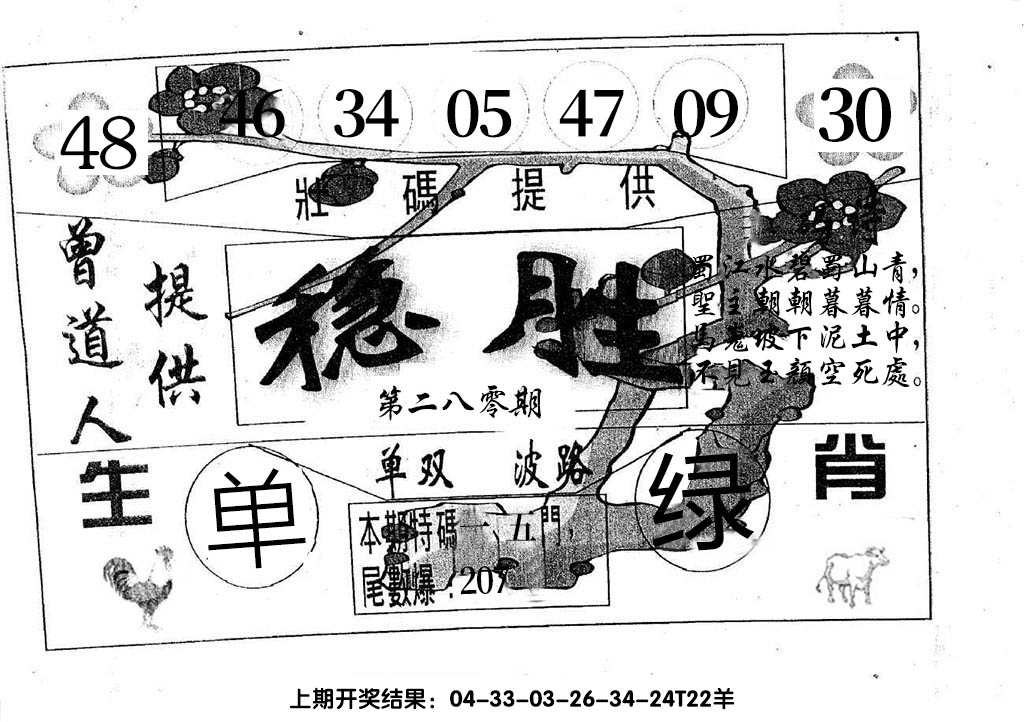 48 46 34 05 47 09 30
壯碼提供
特
曾道人
提供
稳胜
第二八零期
蜀江水碧蜀山青，
聖主朝朝暮暮情。
馬嵬坡下泥土中，
不見玉顏空死處。
单双 波路
生肖
单
绿
本期特碼一、五門，
尾數爆：207
上期开奖结果：04-33-03-26-34-24T22羊